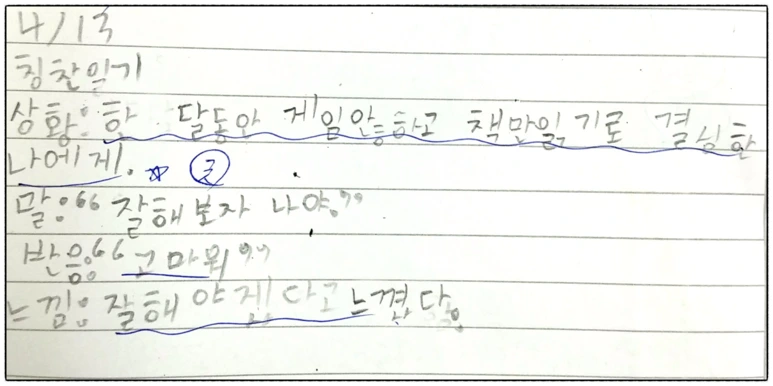 4/13
칭찬일기
상황: 한 달동안 게임안하고 책만읽기로 결심한
나에게.
말: "잘해보자 나야."
반응: "고마워."
느낌: 잘해야겠다고 느꼈다.